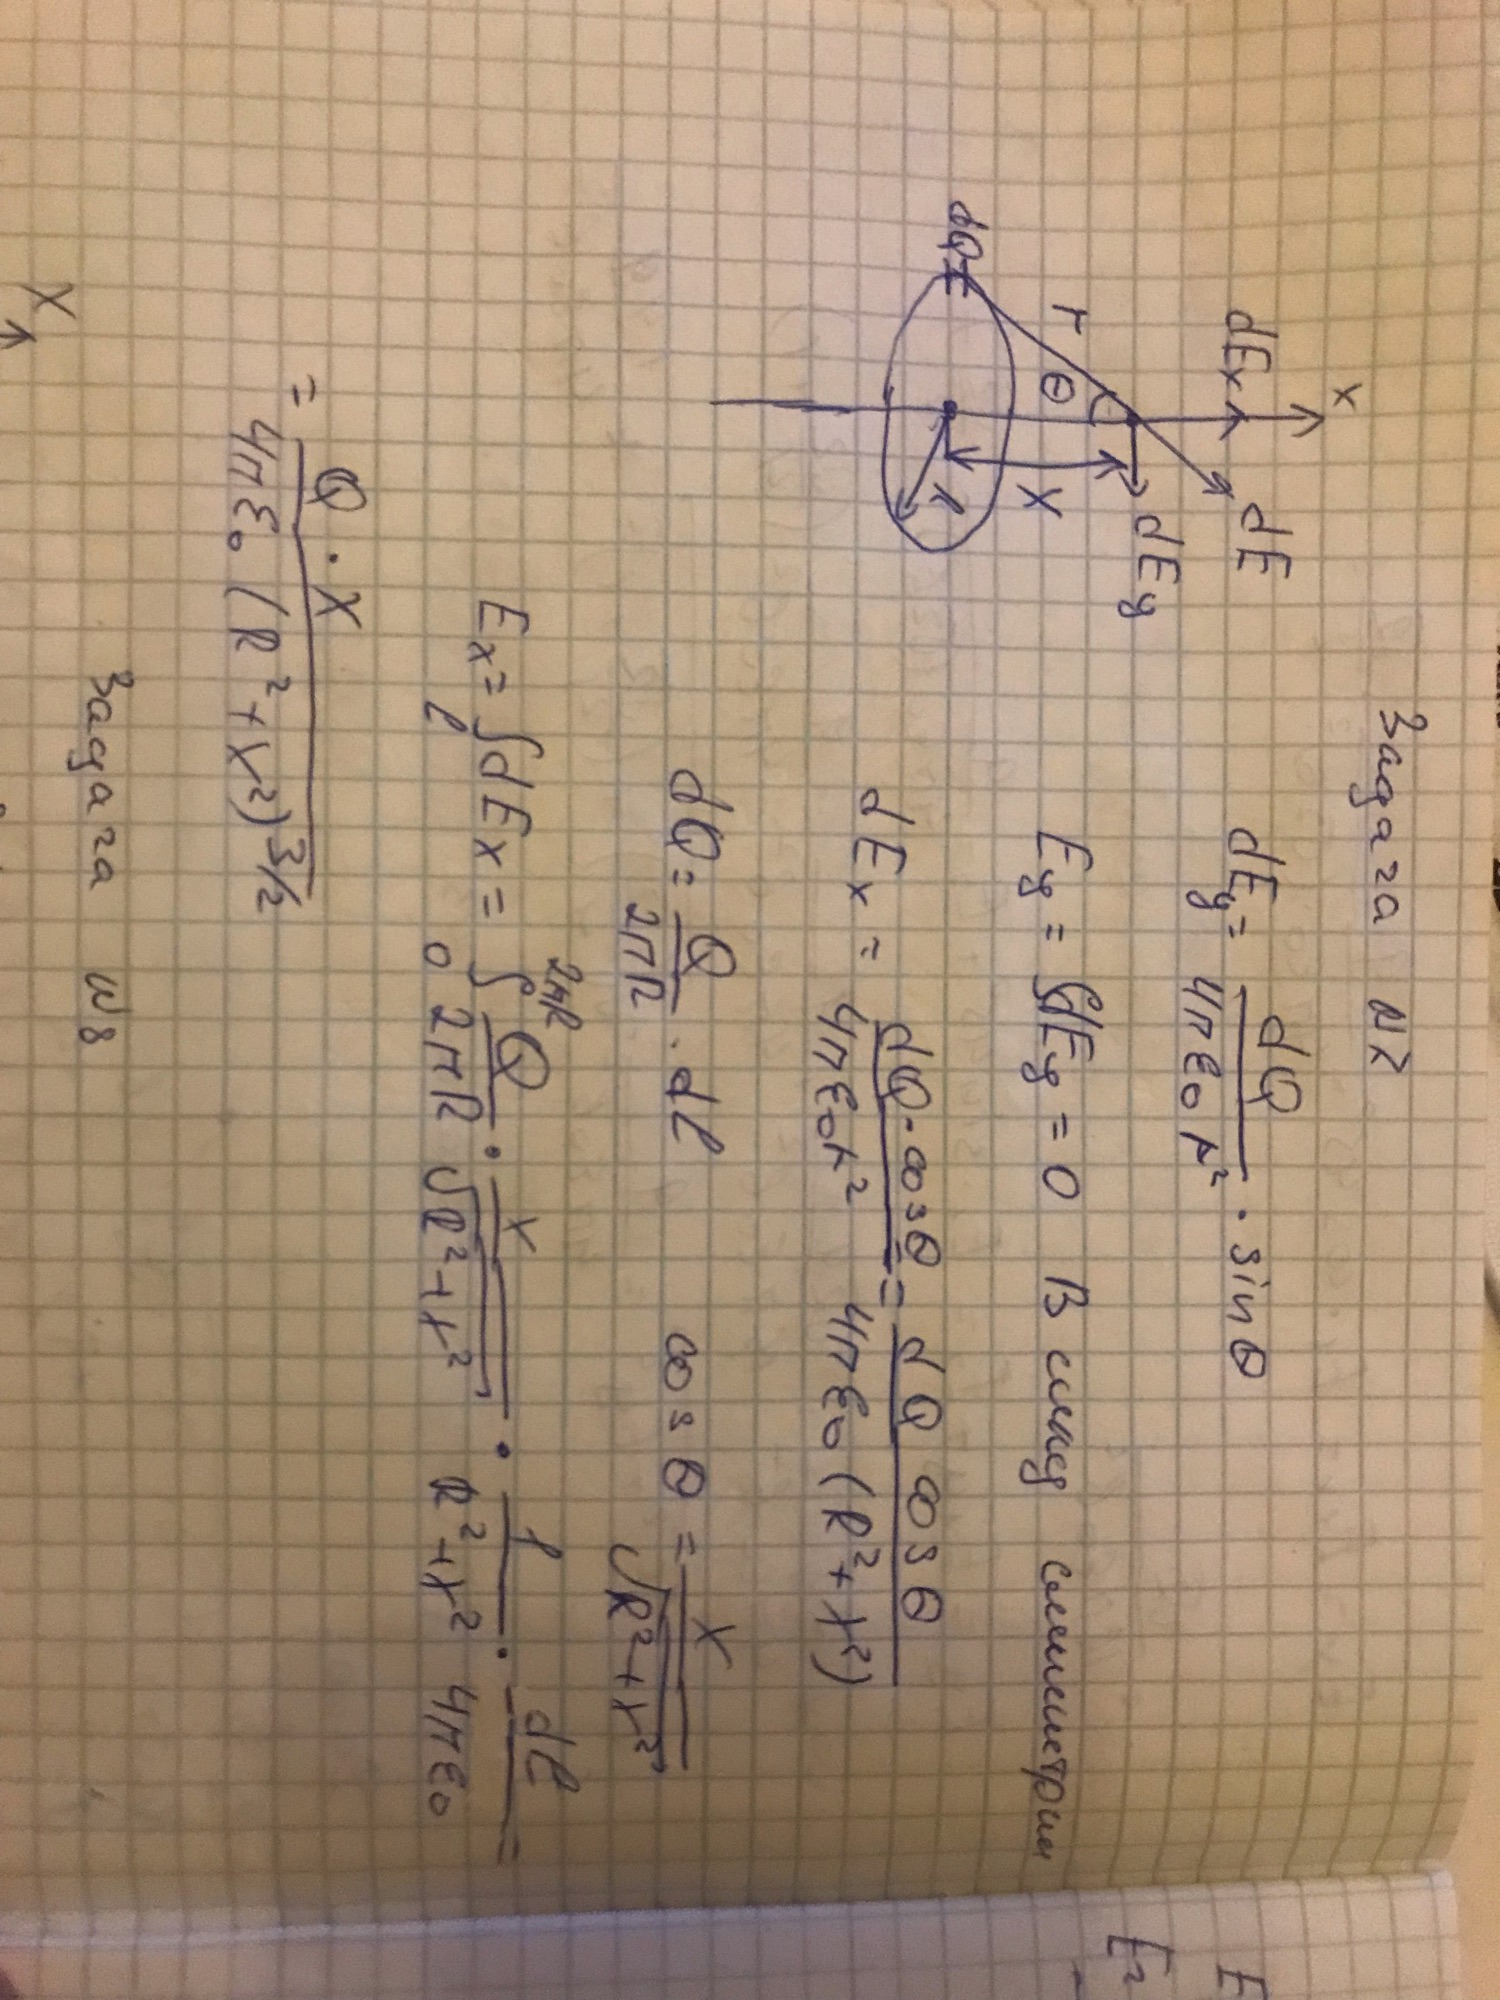 Задача N7
x
dEx
dE
dEy
r
θ
x
dQ
R
dEy = dQ / 4πε₀r² · sinθ
Ey = ∫dEy = 0 В силу симметрии
dEx = dQ·cosθ / 4πε₀r² = dQ cosθ / 4πε₀(R²+x²)
dQ = Q / 2πR · dl cosθ = x / √(R²+x²)
Ex = ∫_l dEx = ∫₀^2πR Q / 2πR · x / √(R²+x²) · 1 / R²+x² · dl / 4πε₀ =
= Q·x / 4πε₀(R²+x²)^3/2
Задача N8
X
E
E=